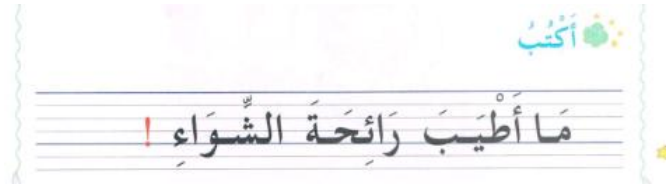 أَكْتُبُ
مَا أَطْيَبَ رَائِحَةَ الشِّوَاءِ !